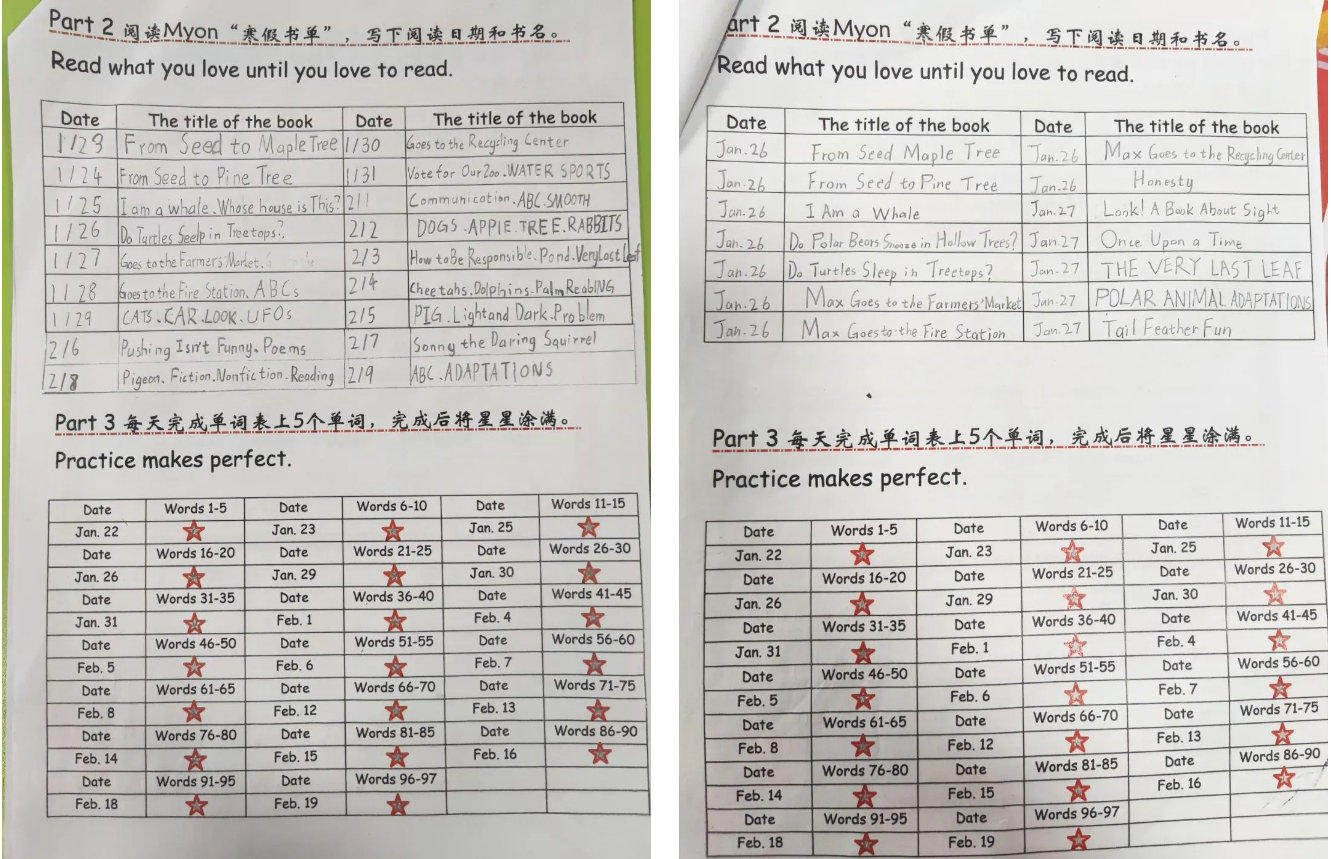 Part 2 阅读Myon“寒假书单”，写下阅读日期和书名。
Read what you love until you love to read.
Date The title of the book Date The title of the book
1/23 From Seed to Maple Tree 1/30 Goes to the Recycling Center
1/24 From Seed to Pine Tree 1/31 Vote for Our Zoo.WATER SPORTS
1/25 I am a whale.Whose house is This? 2/1 Communication.ABC.SMOOTH
1/26 Do Turtles Seelp in Treetops?. 2/2 DOGS.APPIE.TREE.RABBITS
1/27 Goes to the Farmers' Market. 2/3 How to Be Responsible.Pond.Very Last Leaf
1/28 Goes to the Fire Station.ABCs 2/4 Cheetahs.Dolphins.Palm ReabING
1/29 CATS.EAR.LOOK.UFOs 2/5 PIG.Light and Dark.Problem
2/6 Pushing Isn't Funny.Poems 2/7 Sonny the Daring Squirrel
2/8 Pigeon.Fiction.Nonfiction.Reading 2/9 ABC.ADAPTATIONS
Part 3 每天完成单词表上5个单词，完成后将星星涂满。
Practice makes perfect.
Date Words 1-5 Date Words 6-10 Date Words 11-15
Jan. 22 Jan. 23 Jan. 25
Date Words 16-20 Date Words 21-25 Date Words 26-30
Jan. 26 Jan. 29 Jan. 30
Date Words 31-35 Date Words 36-40 Date Words 41-45
Jan. 31 Feb. 1 Feb. 4
Date Words 46-50 Date Words 51-55 Date Words 56-60
Feb. 5 Feb. 6 Feb. 7
Date Words 61-65 Date Words 66-70 Date Words 71-75
Feb. 8 Feb. 12 Feb. 13
Date Words 76-80 Date Words 81-85 Date Words 86-90
Feb. 14 Feb. 15 Feb. 16
Date Words 91-95 Date Words 96-97
Feb. 18 Feb. 19
art 2 阅读Myon“寒假书单”，写下阅读日期和书名。
Read what you love until you love to read.
Date The title of the book Date The title of the book
Jan.26 From Seed Maple Tree Jan.26 Max Goes to the Recycling Center
Jan.26 From Seed to Pine Tree Jan.26 Honesty
Jan.26 I Am a Whale Jan.27 Look! A Book About Sight
Jan.26 Do Polar Bears Snooze in Hollow Trees? Jan.27 Once Upon a Time
Jan.26 Do Turtles Sleep in Treetops? Jan.27 THE VERY LAST LEAF
Jan.26 Max Goes to the Farmers' Market Jan.27 POLAR ANIMAL ADAPTATIONS
Jan.26 Max Goes to the Fire Station Jan.27 Tail Feather Fun
Part 3 每天完成单词表上5个单词，完成后将星星涂满。
Practice makes perfect.
Date Words 1-5 Date Words 6-10 Date Words 11-15
Jan. 22 Jan. 23 Jan. 25
Date Words 16-20 Date Words 21-25 Date Words 26-30
Jan. 26 Jan. 29 Jan. 30
Date Words 31-35 Date Words 36-40 Date Words 41-45
Jan. 31 Feb. 1 Feb. 4
Date Words 46-50 Date Words 51-55 Date Words 56-60
Feb. 5 Feb. 6 Feb. 7
Date Words 61-65 Date Words 66-70 Date Words 71-75
Feb. 8 Feb. 12 Feb. 13
Date Words 76-80 Date Words 81-85 Date Words 86-90
Feb. 14 Feb. 15 Feb. 16
Date Words 91-95 Date Words 96-97
Feb. 18 Feb. 19